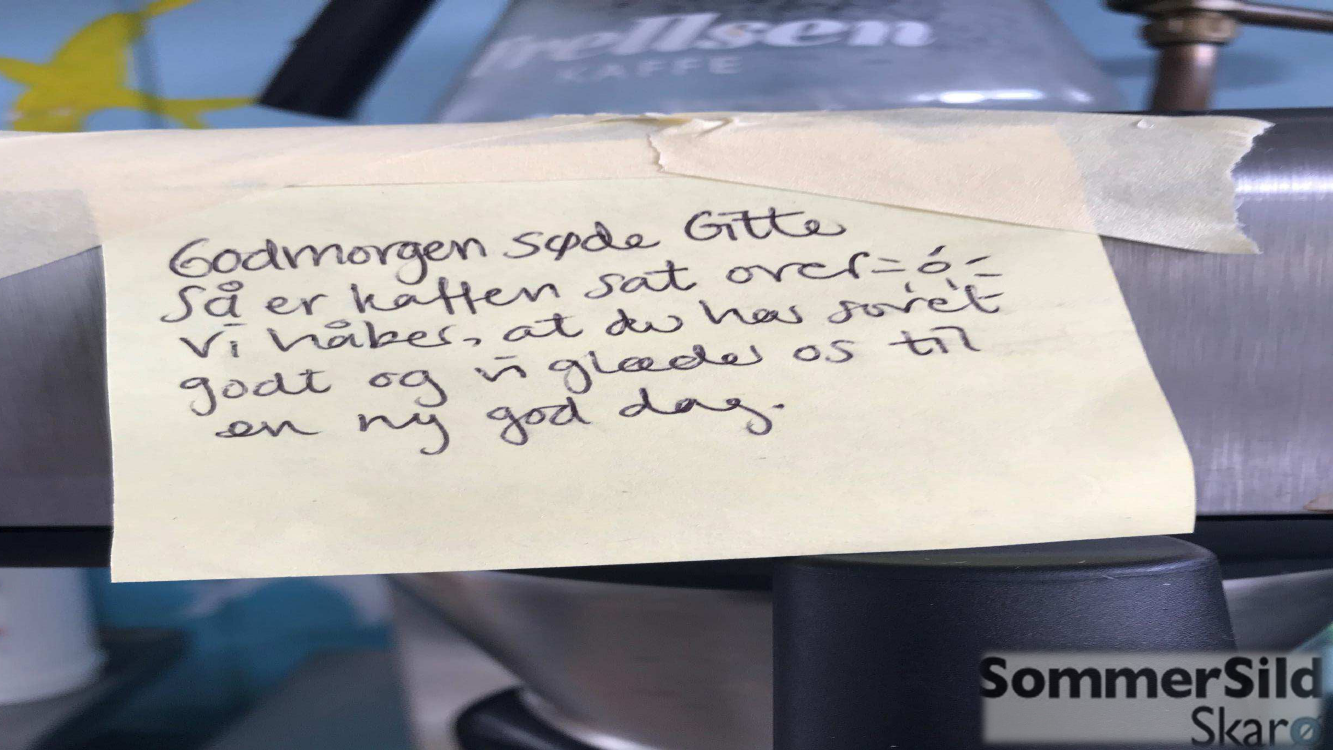 frellsen
KAFFE
Godmorgen søde Gitte
Så er kaffen sat over =ó=
Vi håber, at du har sovet
godt og vi glæder os til
en ny god dag.
SommerSild
Skarø